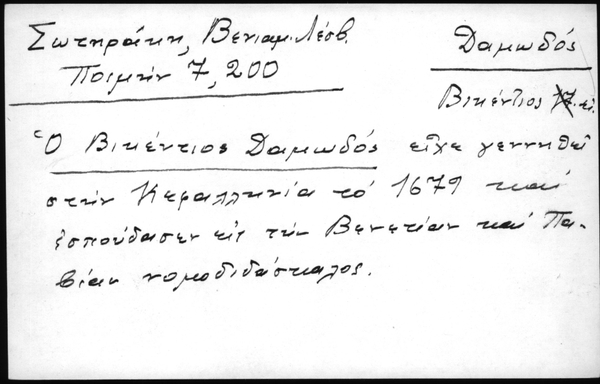 Σωτηράκη, Βενιαμ. Λέσβ.
Ποιμήν 7, 200
Δαμωδός
Βικέντιος
Ὁ Βικέντιος Δαμωδός εἶχε γεννηθεῖ
στήν Κεφαλληνία τό 1679 καί
ἐσπούδασεν εἰς τήν Βενετίαν καί Πα-
βίαν νομοδιδάσκαλος.